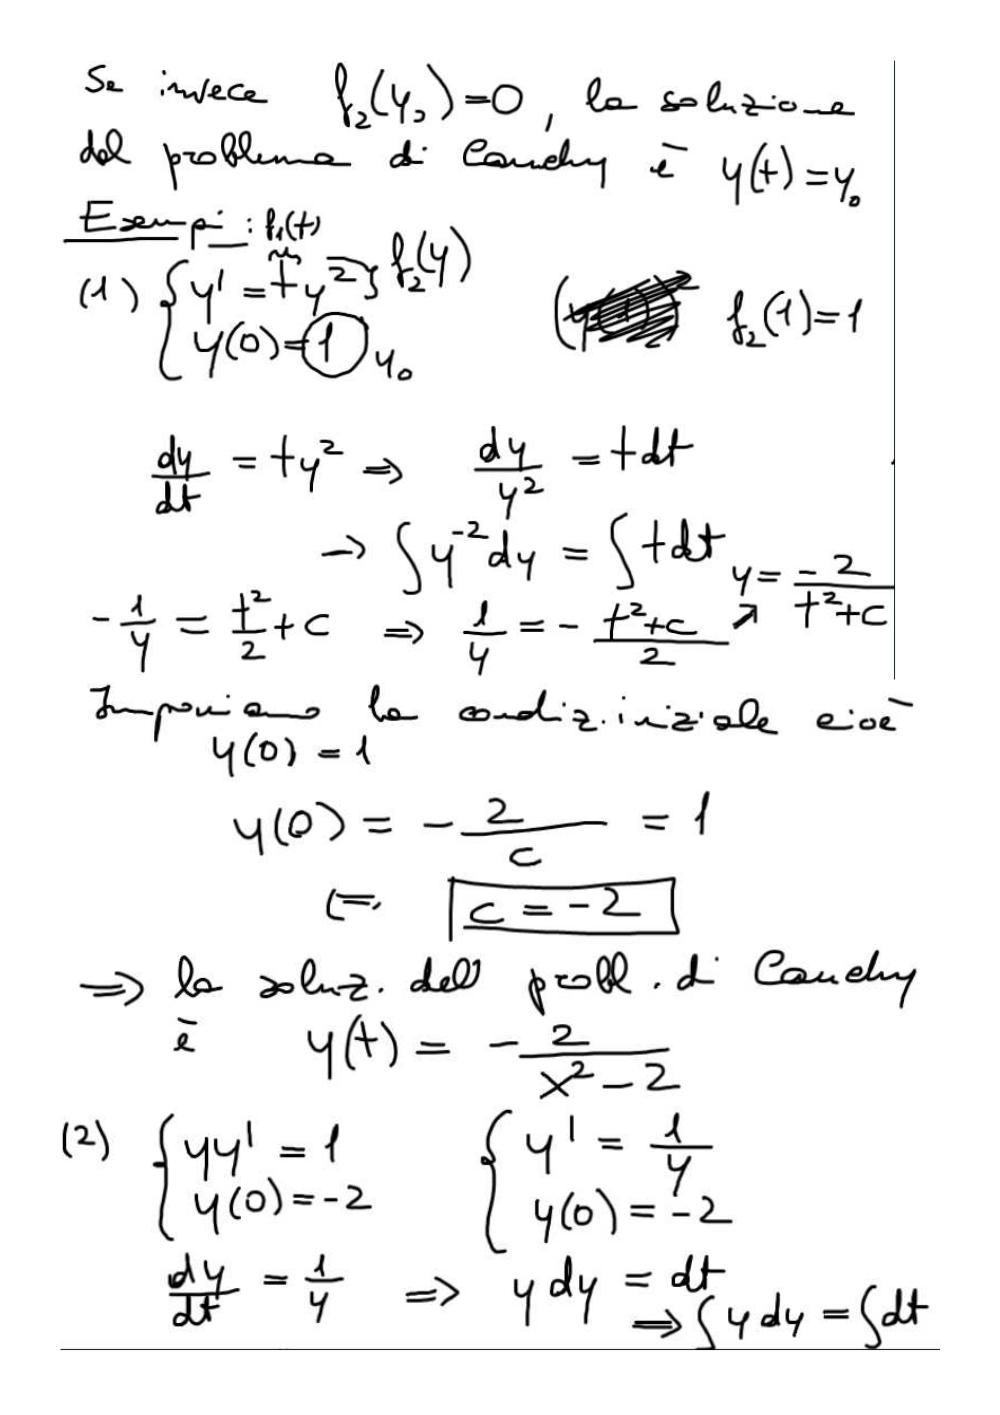 Se invece f₂(y₀)=0, la soluzione
del problema di Cauchy è y(t)=y₀
Esempi: f₁(t)
(1) { y' = ty² } f₂(y)
y(0)=1 y₀ f₂(1)=1
dy/dt = ty² ⇒ dy/y² = tdt
→ ∫y⁻²dy = ∫tdt
y = -2/(t²+c)
-1/y = t²/2 + c ⇒ 1/y = - (t²+c)/2 ↗
Imponiamo la condiz. iniziale cioè
y(0) = 1
y(0) = - 2/c = 1
c = -2
⇒ la soluz. dell probl. di Cauchy
è y(t) = - 2/(x²-2)
(2) { yy' = 1 { y' = 1/y
y(0)=-2 y(0)=-2
dy/dt = 1/y ⇒ y dy = dt
⇒ ∫y dy = ∫dt